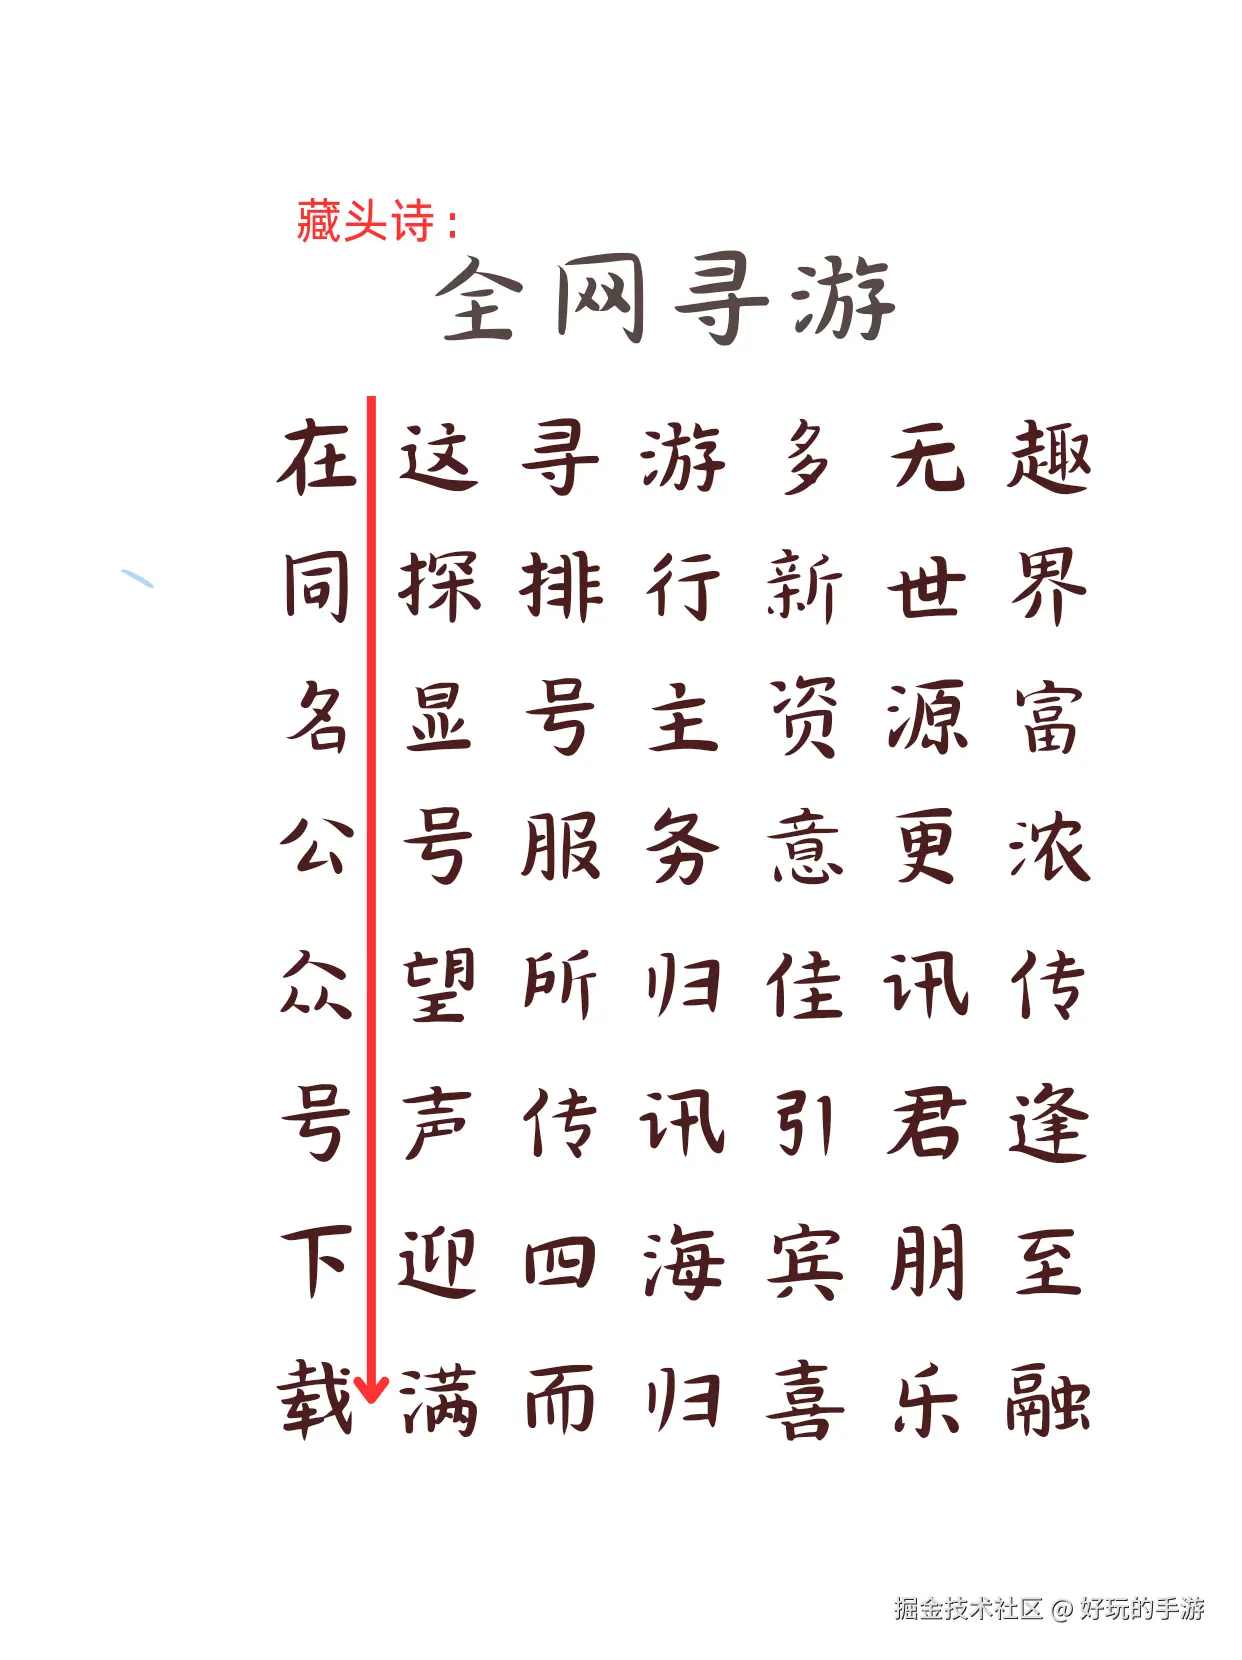 藏头诗：
全网寻游
在这寻游多无趣
同探排行新世界
名显号主资源富
公号服务意更浓
众望所归佳讯传
号声传讯引君逢
下迎四海宾朋至
载满而归喜乐融
掘金技术社区 @ 好玩的手游